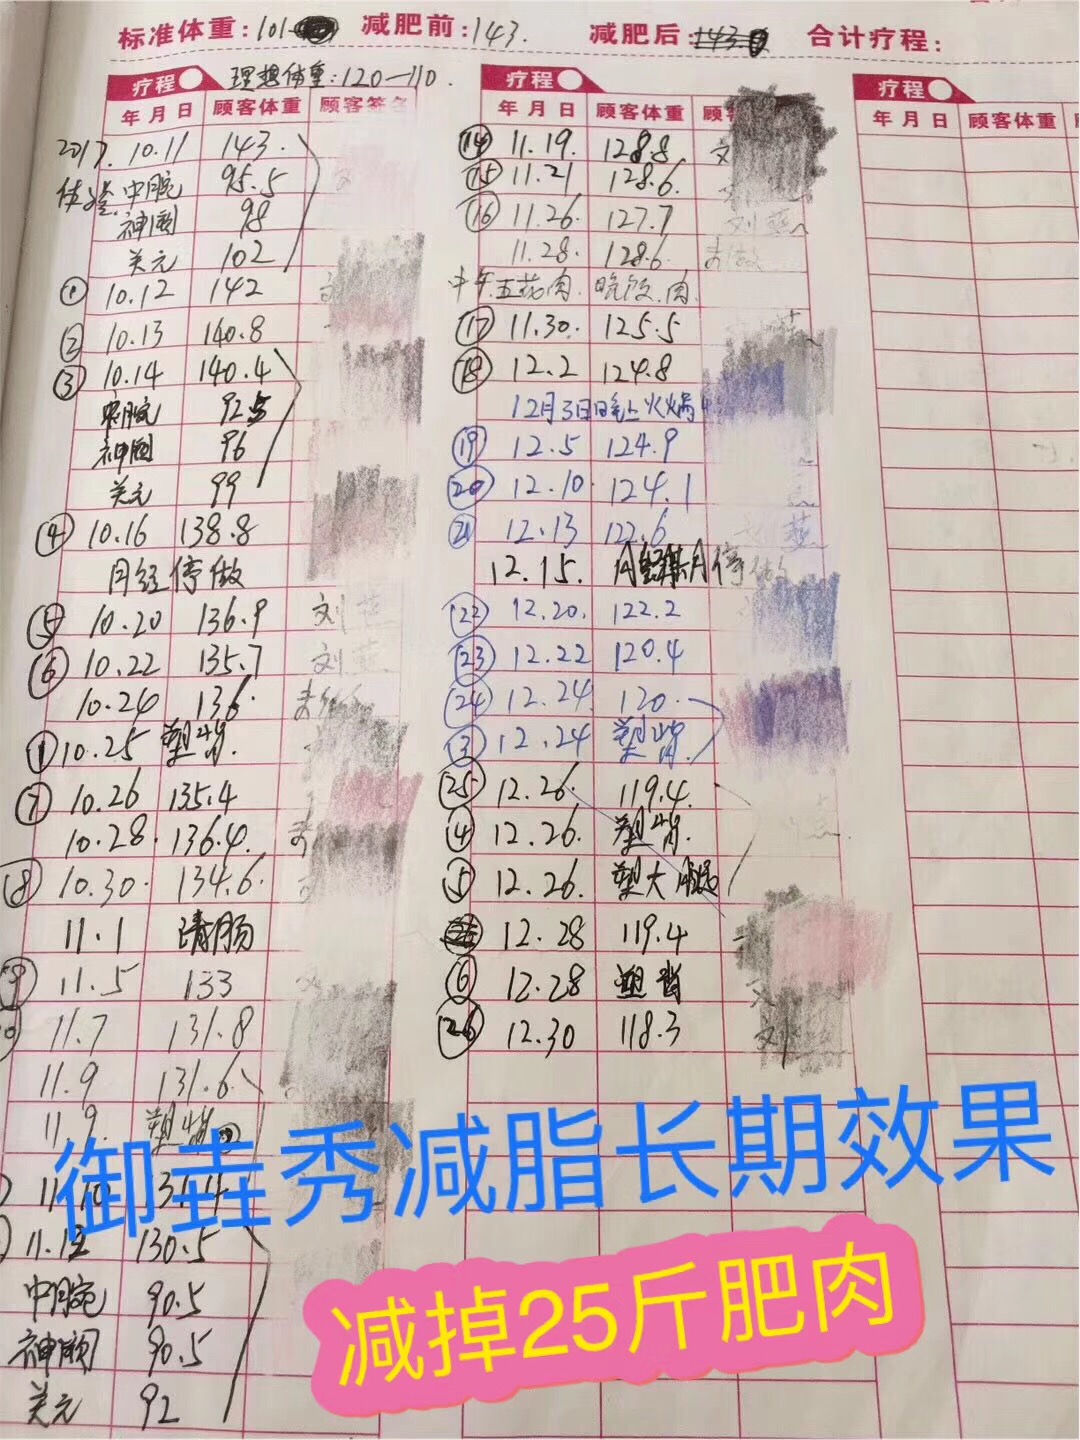 标准体重:101 减肥前:143. 减肥后:143.0 合计疗程:
疗程 理想体重:120—110.
年月日 顾客体重 顾客签名
2017. 10.11 143.
体验 中脘 95.5
神阙 98
关元 102
① 10.12 142
② 10.13 140.8
③ 10.14 140.4
中脘 92.5
神阙 96
关元 99
④ 10.16 138.8
月经停做
⑤ 10.20 136.9 刘燕
⑥ 10.22 135.7 刘燕
10.24 136. 未做
① 10.25 塑背.
⑦ 10.26 135.4
10.28. 136.4.
⑧ 10.30. 134.6.
11.1 清肠
⑨ 11.5 133
11.7 131.8
11.9 131.6
11.9. 塑背②
11.12 130.5
中脘 90.5
神阙 90.5
关元 92
疗程
年月日 顾客体重
⑭ 11.19. 128.8
⑮ 11.21 128.6.
⑯ 11.26. 127.7 刘燕
11.28. 128.6. 未做
中午.五花肉. 晚饭.肉.
⑰ 11.30. 125.5
⑱ 12.2 124.8
12月3日晚上火锅
⑲ 12.5 124.9
⑳ 12.10. 124.1
㉑ 12.13 122.6
12.15. 月经期停做
㉒ 12.20. 122.2
㉓ 12.22 120.4
㉔ 12.24. 120.
③ 12.24 塑背.
㉕ 12.26. 119.4.
④ 12.26. 塑背.
⑤ 12.26. 塑大腿
12.28 119.4
⑥ 12.28 塑背
㉖ 12.30 118.3 刘
疗程
年月日 顾客体重
御垚秀减脂长期效果
减掉25斤肥肉